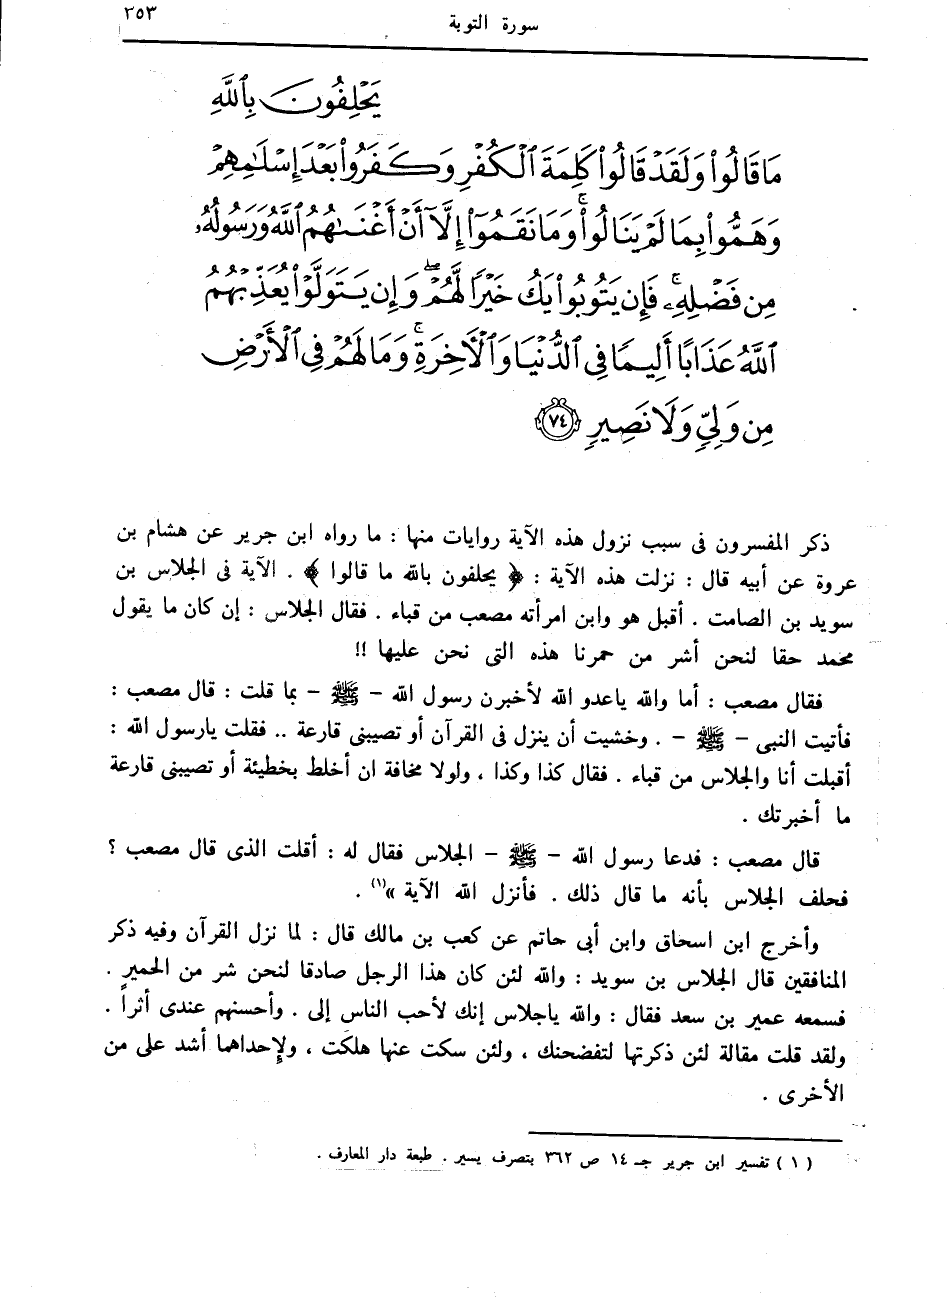 سورة التوبة
٣٥٣
يَحْلِفُونَ بِٱللَّهِ
مَا قَالُوا۟ وَلَقَدْ قَالُوا۟ كَلِمَةَ ٱلْكُفْرِ وَكَفَرُوا۟ بَعْدَ إِسْلَـٰمِهِمْ
وَهَمُّوا۟ بِمَا لَمْ يَنَالُوا۟ ۚ وَمَا نَقَمُوٓا۟ إِلَّآ أَنْ أَغْنَىٰهُمُ ٱللَّهُ وَرَسُولُهُۥ
مِن فَضْلِهِۦ ۚ فَإِن يَتُوبُوا۟ يَكُ خَيْرًا لَّهُمْ ۖ وَإِن يَتَوَلَّوْا۟ يُعَذِّبْهُمُ
ٱللَّهُ عَذَابًا أَلِيمًا فِى ٱلدُّنْيَا وَٱلْـَٔاخِرَةِ ۚ وَمَا لَهُمْ فِى ٱلْأَرْضِ
مِن وَلِىٍّ وَلَا نَصِيرٍ ٧٤
ذكر المفسرون فى سبب نزول هذه الآية روايات منها : ما رواه ابن جرير عن هشام بن
عروة عن أبيه قال : نزلت هذه الآية : ﴿ يحلفون بالله ما قالوا ﴾ . الآية فى الجلاس بن
سويد بن الصامت . أقبل هو وابن امرأته مصعب من قباء . فقال الجلاس : إن كان ما يقول
محمد حقا لنحن أشر من حمرنا هذه التى نحن عليها !!
فقال مصعب : أما والله ياعدو الله لأخبرن رسول الله – ﷺ – بما قلت : قال مصعب :
فأتيت النبى – ﷺ – . وخشيت أن ينزل فى القرآن أو تصيبنى قارعة .. فقلت يارسول الله :
أقبلت أنا والجلاس من قباء . فقال كذا وكذا ، ولولا مخافة ان أخلط بخطيئة أو تصيبنى قارعة
ما أخبرتك .
قال مصعب : فدعا رسول الله – ﷺ – الجلاس فقال له : أقلت الذى قال مصعب ؟
فحلف الجلاس بأنه ما قال ذلك . فأنزل الله الآية »(١) .
وأخرج ابن اسحاق وابن أبى حاتم عن كعب بن مالك قال : لما نزل القرآن وفيه ذكر
المنافقين قال الجلاس بن سويد : والله لئن كان هذا الرجل صادقا لنحن شر من الحمير .
فسمعه عمير بن سعد فقال : والله ياجلاس إنك لأحب الناس إلى . وأحسنهم عندى أثراً .
ولقد قلت مقالة لئن ذكرتها لتفضحنك ، ولئن سكت عنها هلكت ، ولإحداهما أشد على من
الأخرى .
( ١ ) تفسير ابن جرير جـ ١٤ ص ٣٦٢ بتصرف يسير . طبعة دار المعارف .